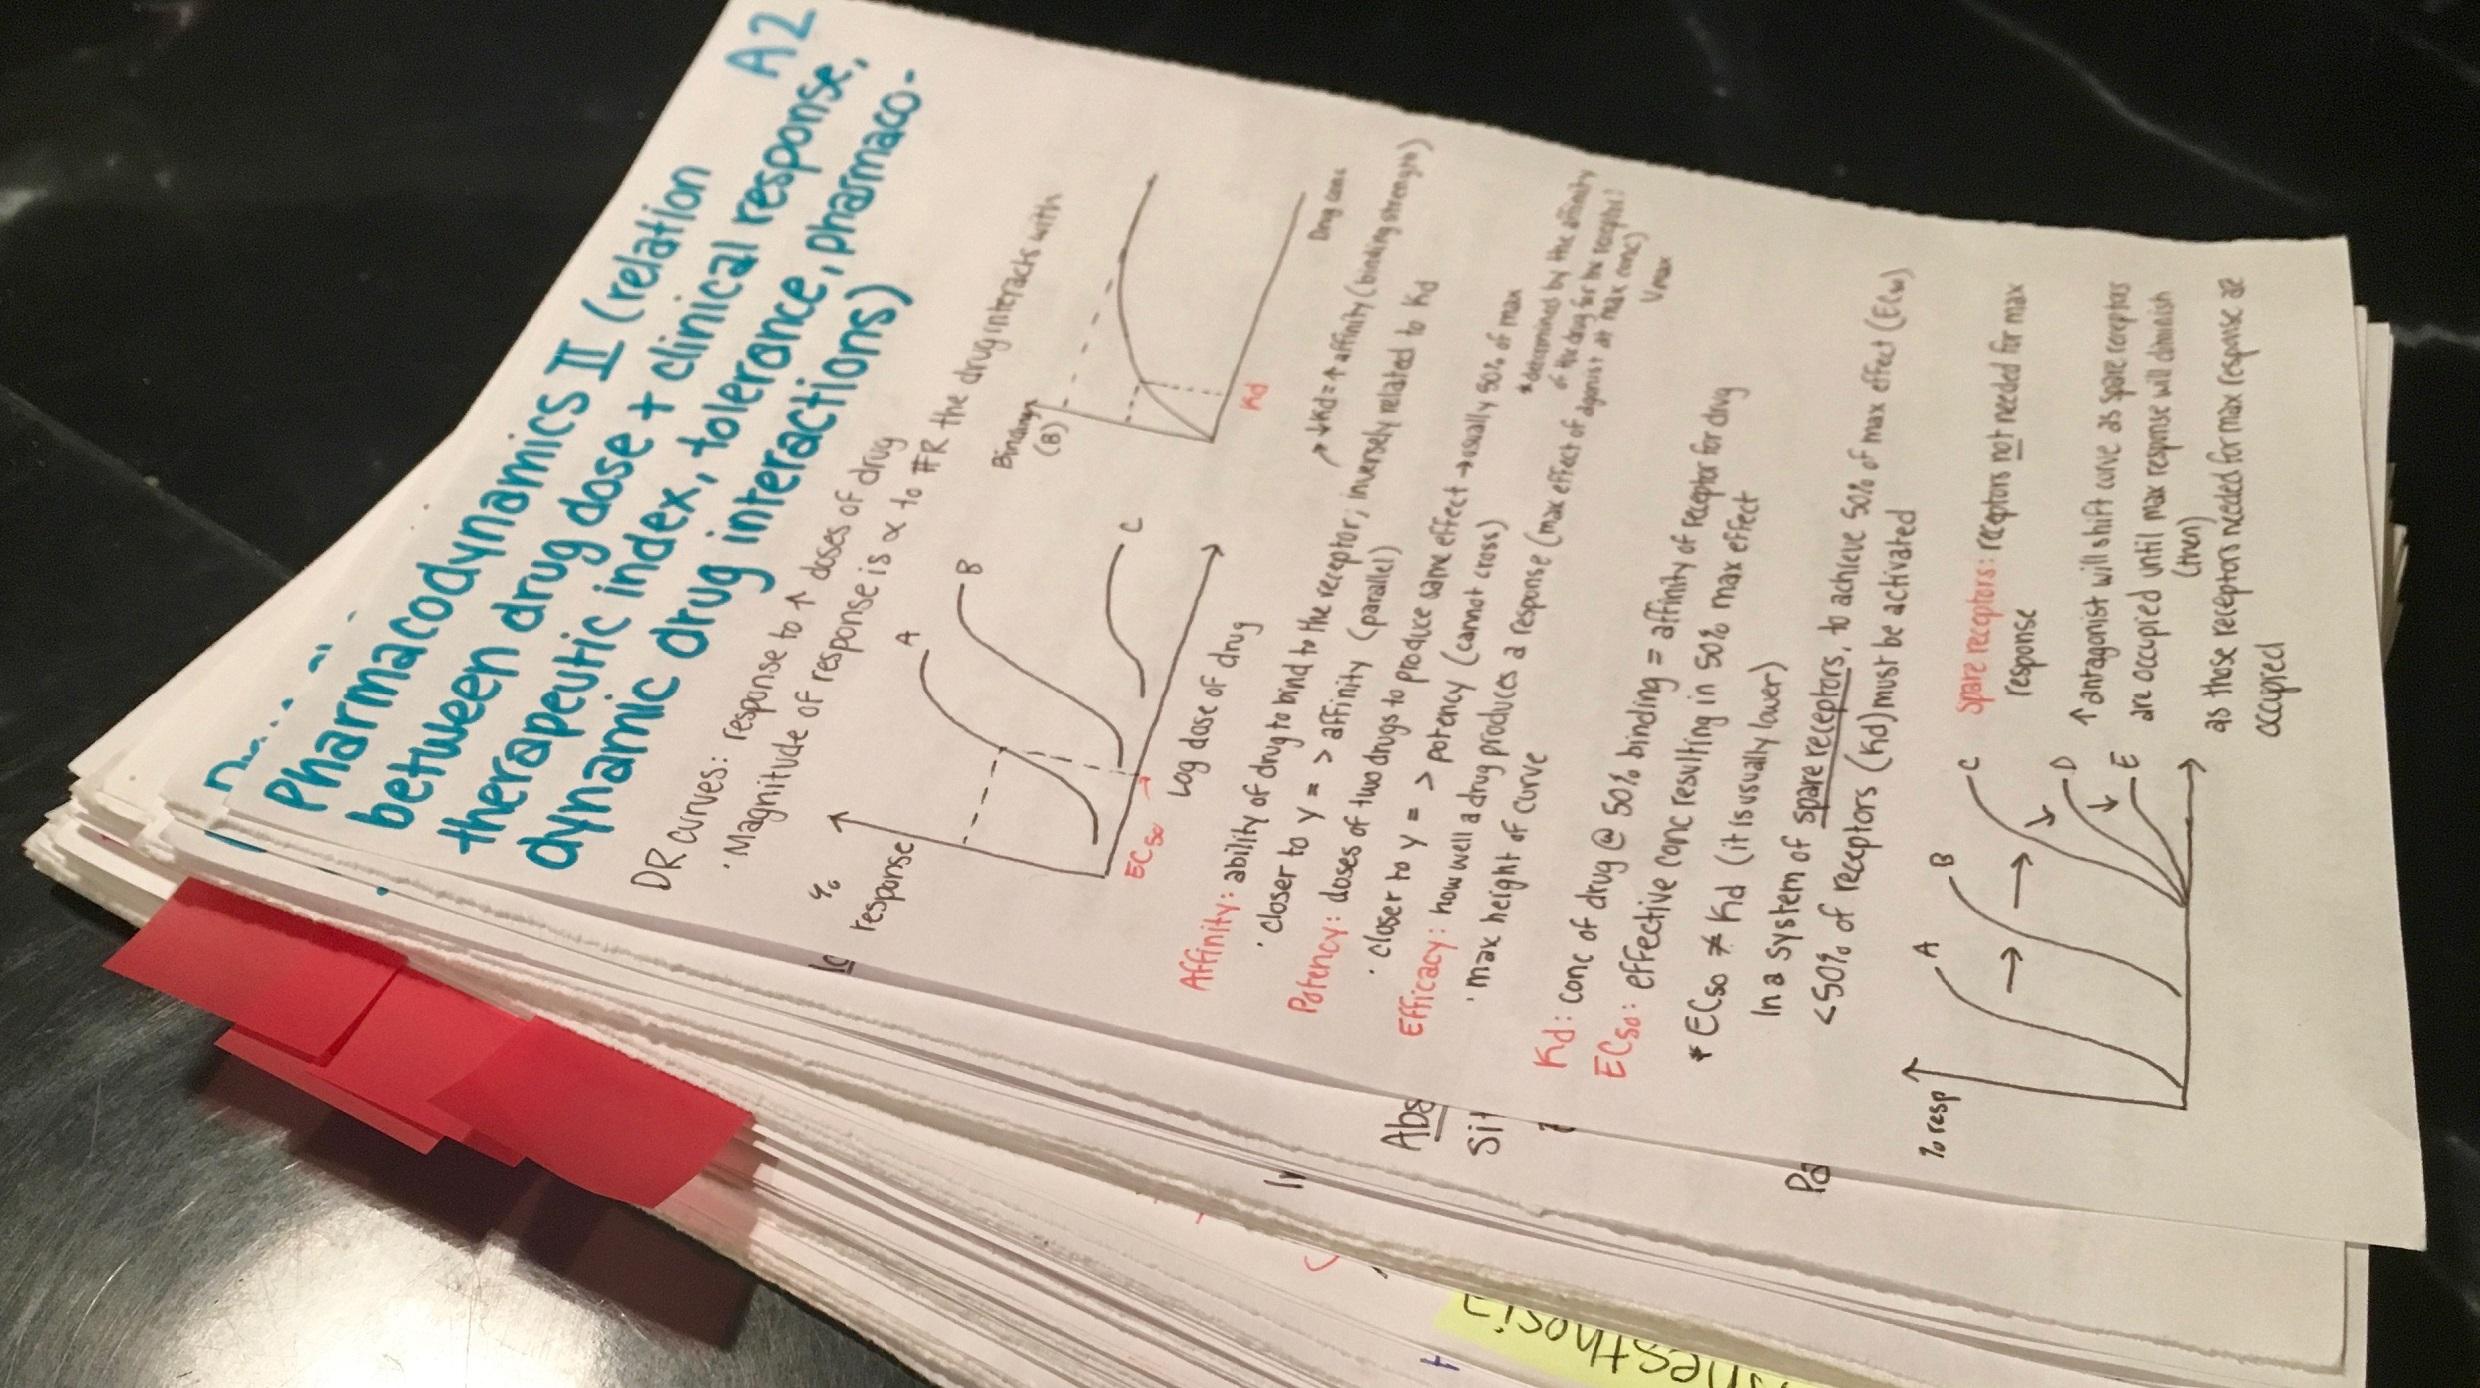 A2
Pharmacodynamics III (relation
between drug dose + clinical response,
therapeutic index, tolerance, pharmaco-
dynamic drug interactions)
DR curves: response to ↑ doses of drug
· Magnitude of response is ∝ to #R the drug interacts with
%
response
A
B
C
EC50 →
Log dose of drug
Binding
(B)
Kd
Drug conc
Affinity: ability of drug to bind to the receptor; inversely related to Kd
↗ ↓Kd = ↑ affinity (binding strength)
· closer to y = > affinity (parallel)
Potency: doses of two drugs to produce same effect → usually 50% of max
· closer to y = > potency (cannot cross)
*determined by the affinity
of the drug for his receptor!
Efficacy: how well a drug produces a response (max effect of agonist at max conc)
Vmax
· max height of curve
Kd: conc of drug @ 50% binding = affinity of receptor for drug
EC50: effective conc resulting in 50% max effect
* EC50 ≠ Kd (it is usually lower)
In a system of spare receptors, to achieve 50% of max effect (EC50)
<50% of receptors (Kd) must be activated
% resp
A
B
C
D
E
spare receptors: receptors not needed for max
response
↑ antagonist will shift curve as spare receptors
are occupied until max response will diminish
(then)
as those receptors needed for max response are
occupied
Abs
Sit
Pa
In